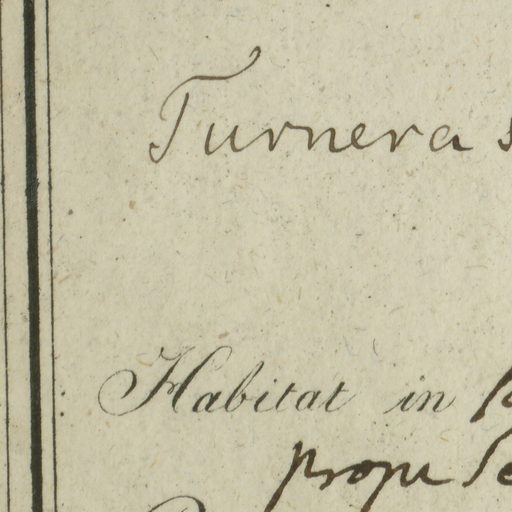 Turnera
Habitat in
prope